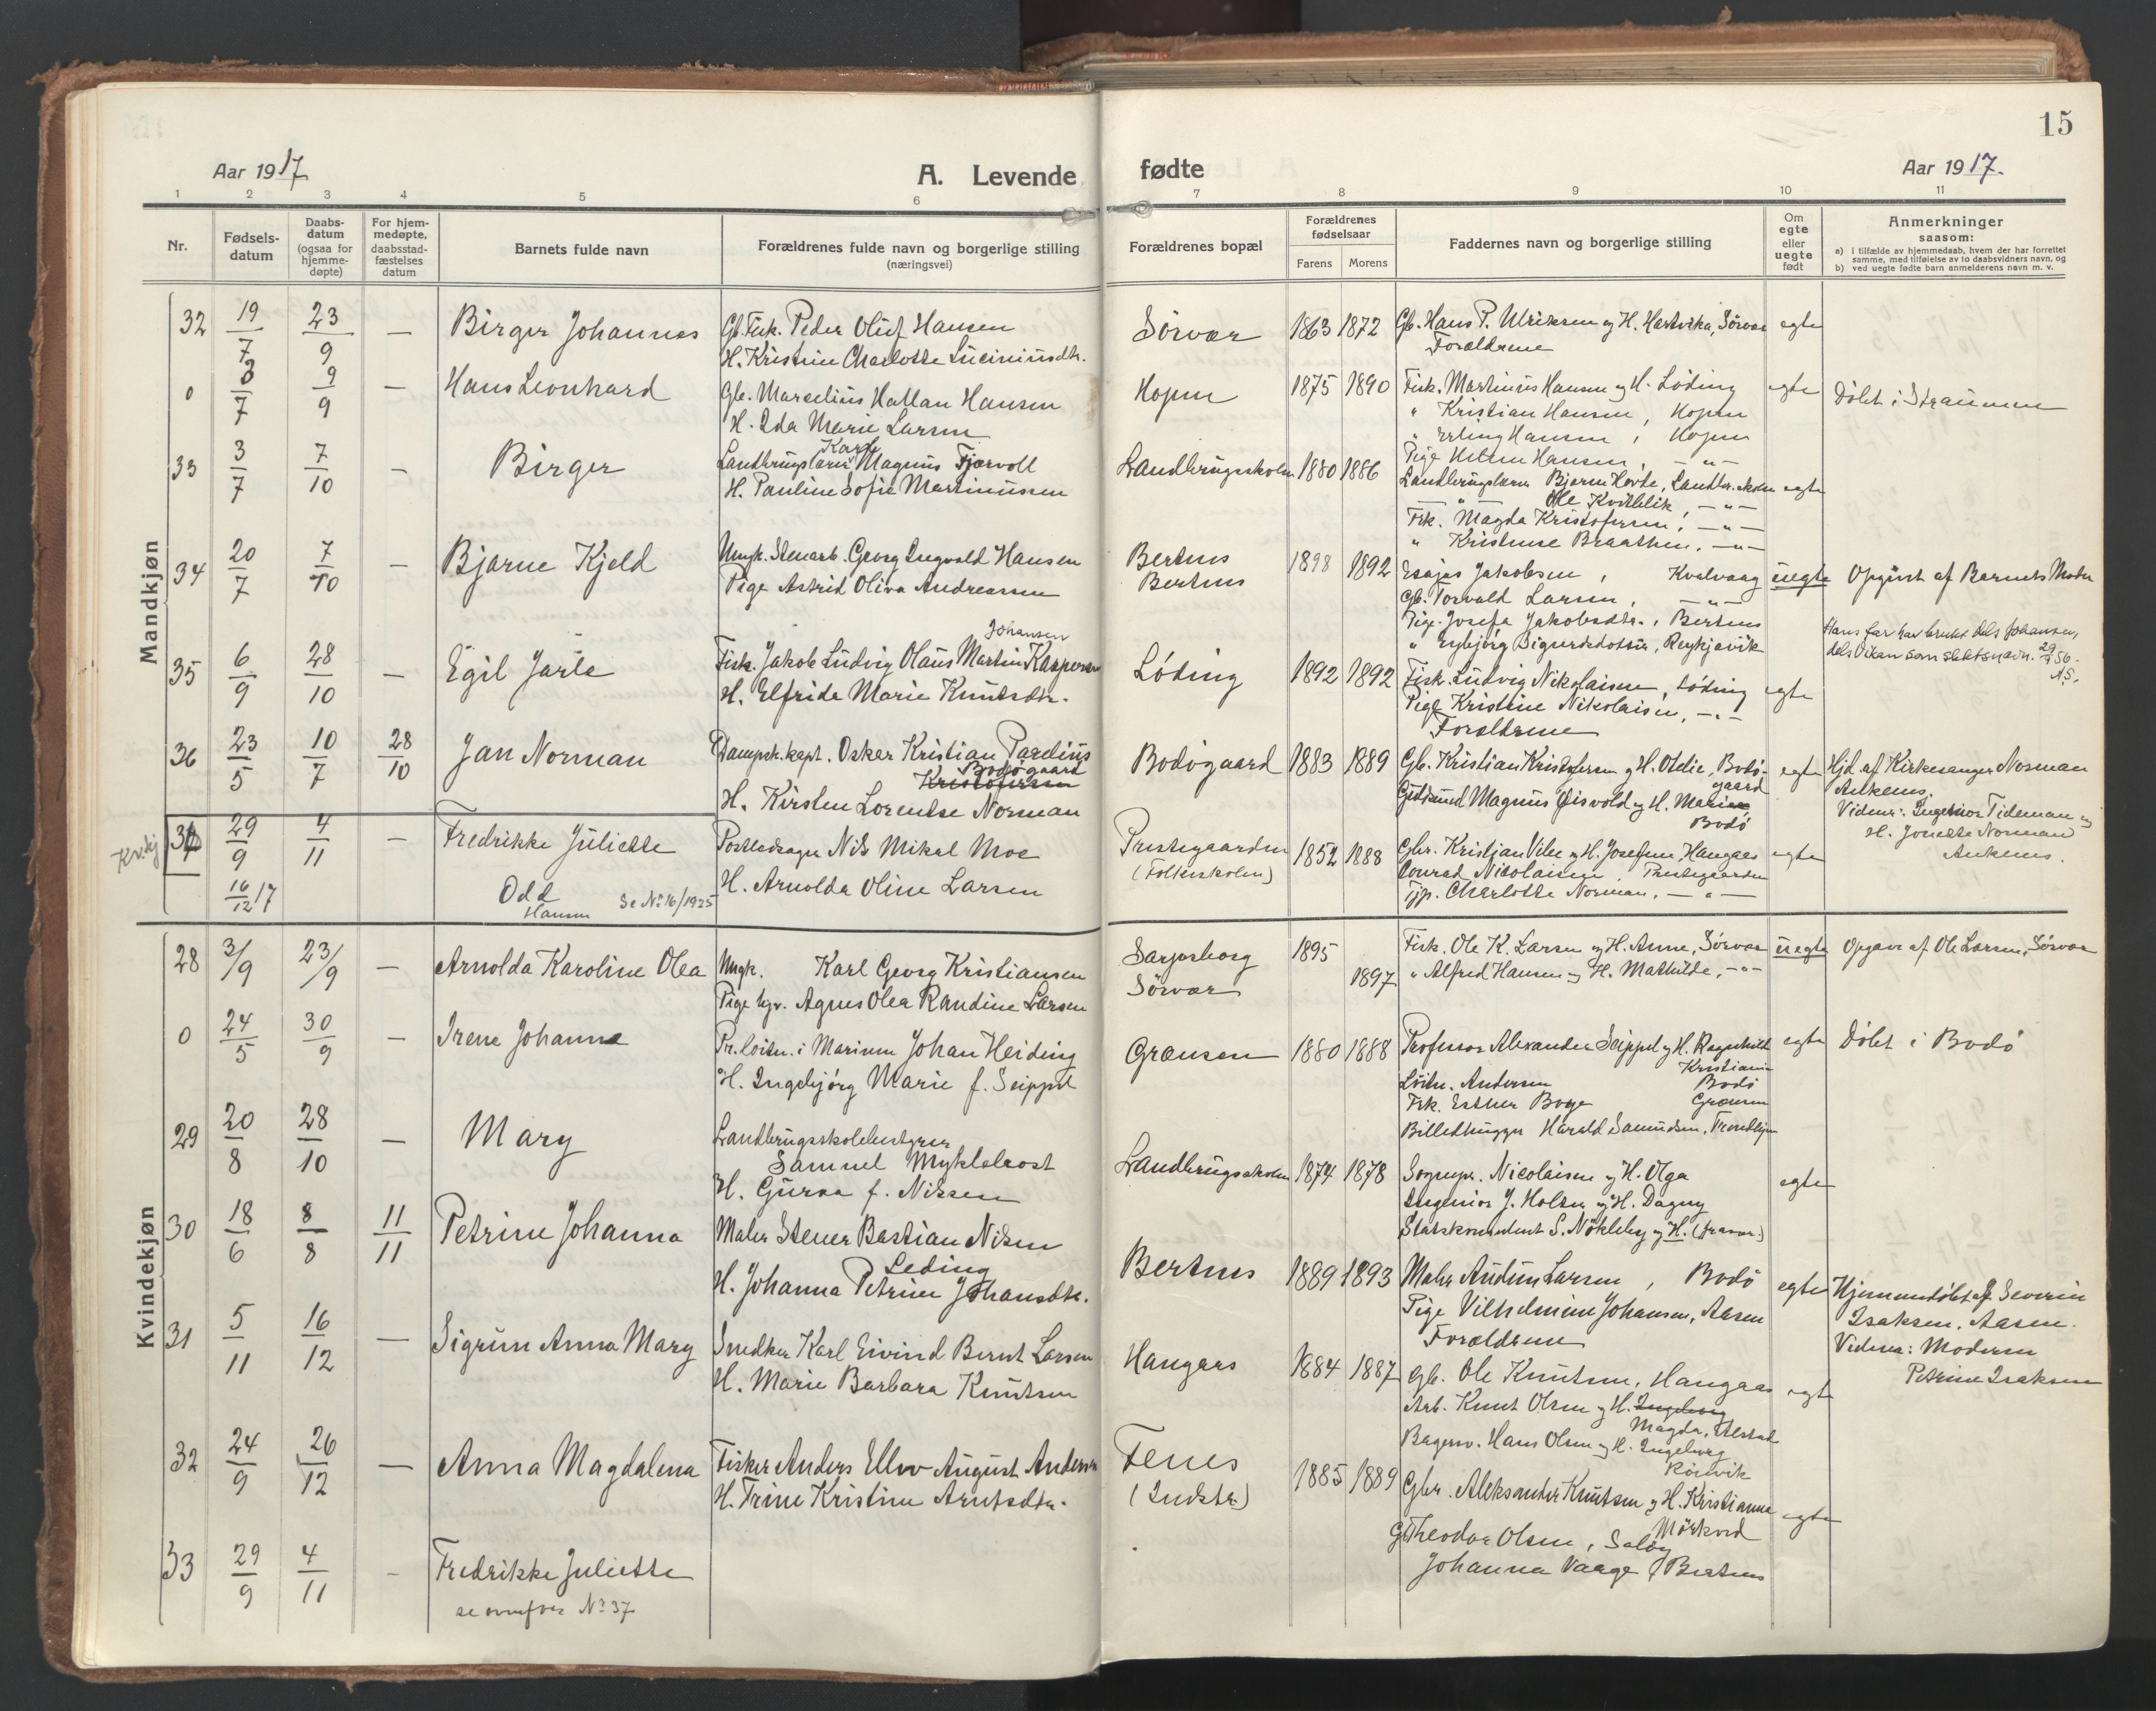 15
Aar 1917
A. Levende fødte
Aar 1917.
1 2 3 4 5 6 7 8 9 10 11
Nr.
Fødsels-
datum
Daabs-
datum
(ogsaa for
hjemme-
døpte)
For hjem-
medøpte,
daabsstad-
fæstelses
datum
Barnets fulde navn
Forældrenes fulde navn og borgerlige stilling
(næringsvei)
Forældrenes bopæl
Forældrenes
fødselsaar
Farens Morens
Faddernes navn og borgerlige stilling
Om
egte
eller
uegte
født
Anmerkninger
saasom:
a) i tilfælde av hjemmedaab, hvem der har forrettet
samme, med tilføielse av to daabsvidners navn, og
b) ved uegte fødte barn anmelderens navn m. v.
Mandkjøn
32 19/7 23/9 — Birger Johannes
Gb. Fisk. Peder Oluf Hansen
H. Kristine Charlotte Luciniusdtr.
Sörvær 1863 1872
Gb. Hans P. Ulriksen og H. Hartvika, Sörvær
Forældrene
egte
0 3/7 9/9 — Hans Leonhard
Gb. Marcelius Hallan Hansen
H. Ida Marie Larsen
Hopen 1875 1890
Fisk. Martinius Hansen og H. Löding
" Kristian Hansen, Hopen
" Erling Hansen, Hopen
Pige Helene Hansen, —"—
egte
Döbt i Straumen
33 3/7 7/10 — Birger
Karl
Landbrugslærer Magnus Fjærvoll
H. Pauline Sofie Martinussen
Landbrugsskolen 1880 1886
Landbrugslærer Bjarne Hovde, Landbr.skolen
—"— Ole Kvitblik, —"—
Frk. Magda Kristofersen, —"—
" Kristense Braathen, —"—
egte
34 20/7 7/10 — Bjarne Kjeld
Ungk. Stenarb. Georg Ingvald Hansen
Pige Astrid Oliva Andreassen
Bertnes
Bertnes
1898 1892
Esajas Jakobsen, Kvalvaag
Gb. Torvald Larsen, —"—
Pige Josefa Jakobsdtr., Bertnes
" Eybjörg Sigurdsdottir, Reykjavik
uegte
Opgivet af Barnets Moder
35 6/9 28/10 — Egil Jarle
Johansen
Fisk. Jakob Ludvig Olaus Martin Kaspersen
H. Elfrida Marie Knutsdtr.
Löding 1892 1892
Fisk. Ludvig Nikolaisen, Löding
Pige Kristine Nikolaisen, —"—
Forældrene
egte
Hans far har brukt dels Johansen,
dels Vikan som slektsnavn. 29/9 56.
N.S.
36 23/5 10/7 28/10 Jan Norman
Dampsk.kapt. Oskar Kristian Pardius
Bodøgaard
Kristofersen
H. Kirsten Lorentse Norman
Bodögaard 1883 1889
Gb. Kristian Kristofersen og H. Otelie, Bodö-
gaard
Guldsmed Magnus Öisvold og H. Marie
Bodö
egte
Hjd. af Kirkesanger Norman
Ankenes.
Vidner: Ingeniör Tideman og
H. Jonette Norman
Ankenes.
Kv.kj
37 29/9 4/11 — Fredrikke Juliette
Postledsager Nils Mikal Moe
H. Arnolda Oline Larsen
Prestegaarden
(Folkeskolen)
1852 1888
Gbr. Kristjan Vilee og H. Josefine, Hangaas
Conrad Nicolaisen, Prestegaarden
Tjp. Charlotte Norman, —"—
egte
16/12 17 Odd
Hansen
Se No 16/1925
Kvindekjøn
28 3/9 23/9 — Arnolda Karoline Olea
Ungk. Karl Georg Kristiansen
Pige hgv. Agnes Olea Randine Larsen
Sarpsborg
Sörvær
1895
1897
Fisk. Ole K. Larsen og H. Anne, Sörvær
" Alfred Hansen og H. Mathilde, —"—
uegte
Opgave af Ole Larsen, Sörvær
0 24/5 30/9 — Irene Johanne
Pr.löitn. i Marinen Johan Heiding
H. Ingebjörg Marie f. Seippel
Grænsen 1880 1888
Professor Alexander Seippel og H. Ragnhild
Kristiania
Löitn. Andersen Bodö
Frk. Esther Boye Grænsen
Billedhugger Harald Samuelsen, Trondhjem
egte
Döbt i Bodö
29 20/8 28/10 — Mary
Landbrugsskolebestyrer
Samuel Myklebost
H. Gurva f. Nilssen
Landbrugsskolen 1874 1878
Sognepr. Nicolaisen og H. Olga
Ingeniör J. Holter og H. Dagny
Statskonsulent S. Nökleby og H. (fravær.)
egte
30 18/6 8/8 11/11 Petrine Johanna
Maler Stener Bastian Nilsen
Leding
H. Johanna Petrine Johansdtr.
Bertnes 1889 1893
Maler Audun Larsen, Bodö
Pige Vilhelmine Johansen, Aasen
Forældrene
egte
Hjemmedöbt af Severin
Isaksen, Aasen.
Vidner: Moderen
Petrine Isaksen
31 5/11 16/12 — Sigrun Anna Mary
Snedker Karl Eivind Bernt Larsen
H. Marie Barbara Knutsen
Hangaas 1884 1887
Gb. Ole Knutsen, Hangaas
Arb. Knut Olsen og H. Ingeborg
Magda, Alstad
Bagersv. Hans Olsen og H. Ingeborg
Rönvik
egte
32 24/9 26/12 — Anna Magdalena
Fisker Anders Ellev August Andersen
H. Trine Kristine Arntsdtr.
Fenes
(Indstr.)
1885 1889
Gbr. Aleksander Knutsen og H. Kristianna
Mörkved
Gb. Theodor Olsen, Saløy
Johanna Vaage, Bertnes
egte
33 29/9 4/11 - Fredrikke Juliette
se ovenfor No 37